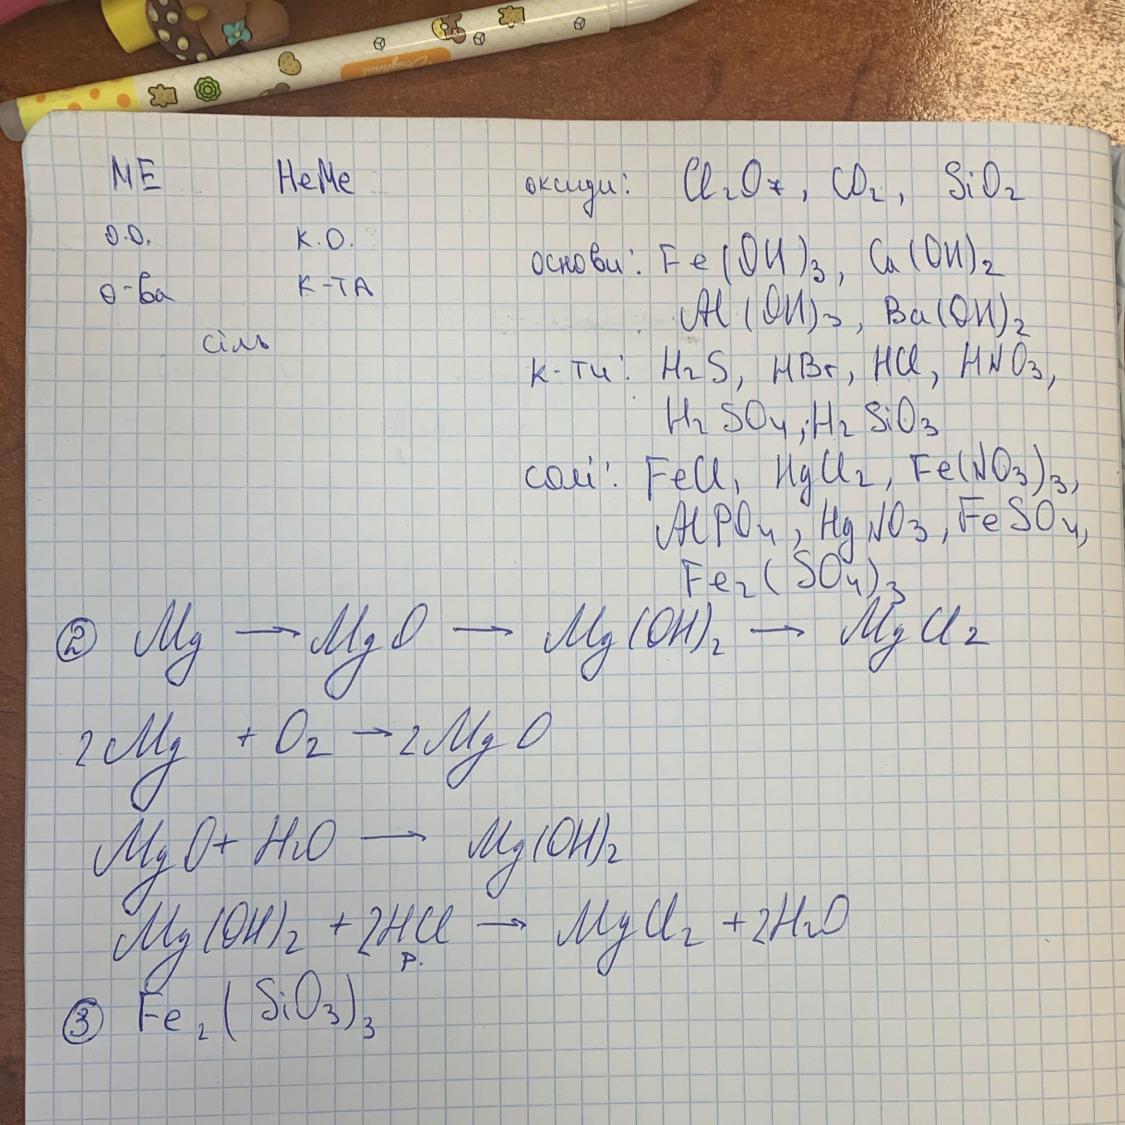 Original
МЕ НеМе
О.О. К.О.
О-ва К-ТА
сіль
оксиди: Cl₂O₇, CO₂, SiO₂
основи: Fe(OH)₃, Cu(OH)₂
Al(OH)₃, Ba(OH)₂
к-ти: H₂S, HBr, HCl, HNO₃,
H₂SO₄, H₂SiO₃
солі: FeCl, HgCl₂, Fe(NO₃)₃,
AlPO₄, HgNO₃, FeSO₄,
Fe₂(SO₄)₃
② Mg → MgO → Mg(OH)₂ → MgCl₂
2Mg + O₂ → 2MgO
MgO + H₂O → Mg(OH)₂
Mg(OH)₂ + 2HCl → MgCl₂ + 2H₂O
р.
③ Fe₂(SiO₃)₃